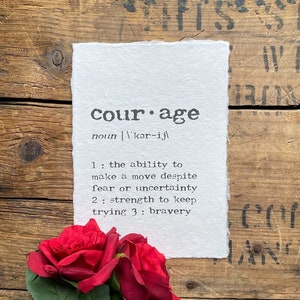 cour·age
noun | \ˈkər-ij\
1 : the ability to
make a move despite
fear or uncertainty
2 : strength to keep
trying 3 : bravery